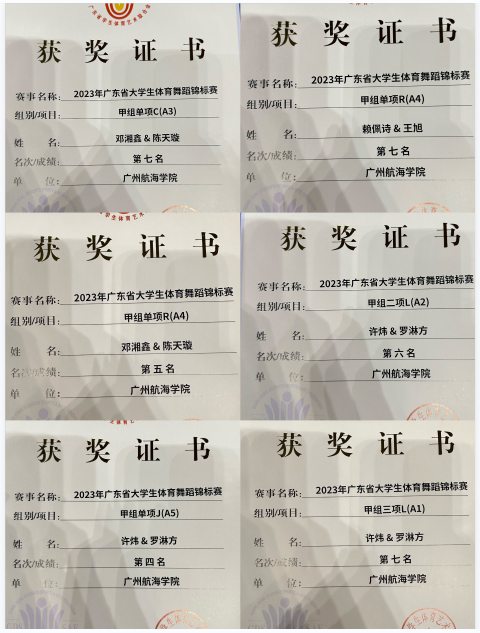 广东省学生体育艺术联合会
获奖证书
赛事名称: 2023年广东省大学生体育舞蹈锦标赛
组别/项目: 甲组单项C(A3)
姓 名: 邓湘鑫 & 陈天璇
名次/成绩: 第七名
单 位: 广州航海学院
获奖证书
赛事名称: 2023年广东省大学生体育舞蹈锦标赛
组别/项目: 甲组单项R(A4)
姓 名: 赖佩诗 & 王旭
名次/成绩: 第七名
单 位: 广州航海学院
学生体育艺术
获奖证书
赛事名称: 2023年广东省大学生体育舞蹈锦标赛
组别/项目: 甲组单项R(A4)
姓 名: 邓湘鑫 & 陈天璇
名次/成绩: 第五名
单 位: 广州航海学院
获奖证书
赛事名称: 2023年广东省大学生体育舞蹈锦标赛
组别/项目: 甲组二项L(A2)
姓 名: 许炜 & 罗淋方
名次/成绩: 第六名
单 位: 广州航海学院
获奖证书
赛事名称: 2023年广东省大学生体育舞蹈锦标赛
组别/项目: 甲组单项J(A5)
姓 名: 许炜 & 罗淋方
名次/成绩: 第四名
单 位: 广州航海学院
获奖证书
赛事名称: 2023年广东省大学生体育舞蹈锦标赛
组别/项目: 甲组三项L(A1)
姓 名: 许炜 & 罗淋方
名次/成绩: 第七名
单 位: 广州航海学院